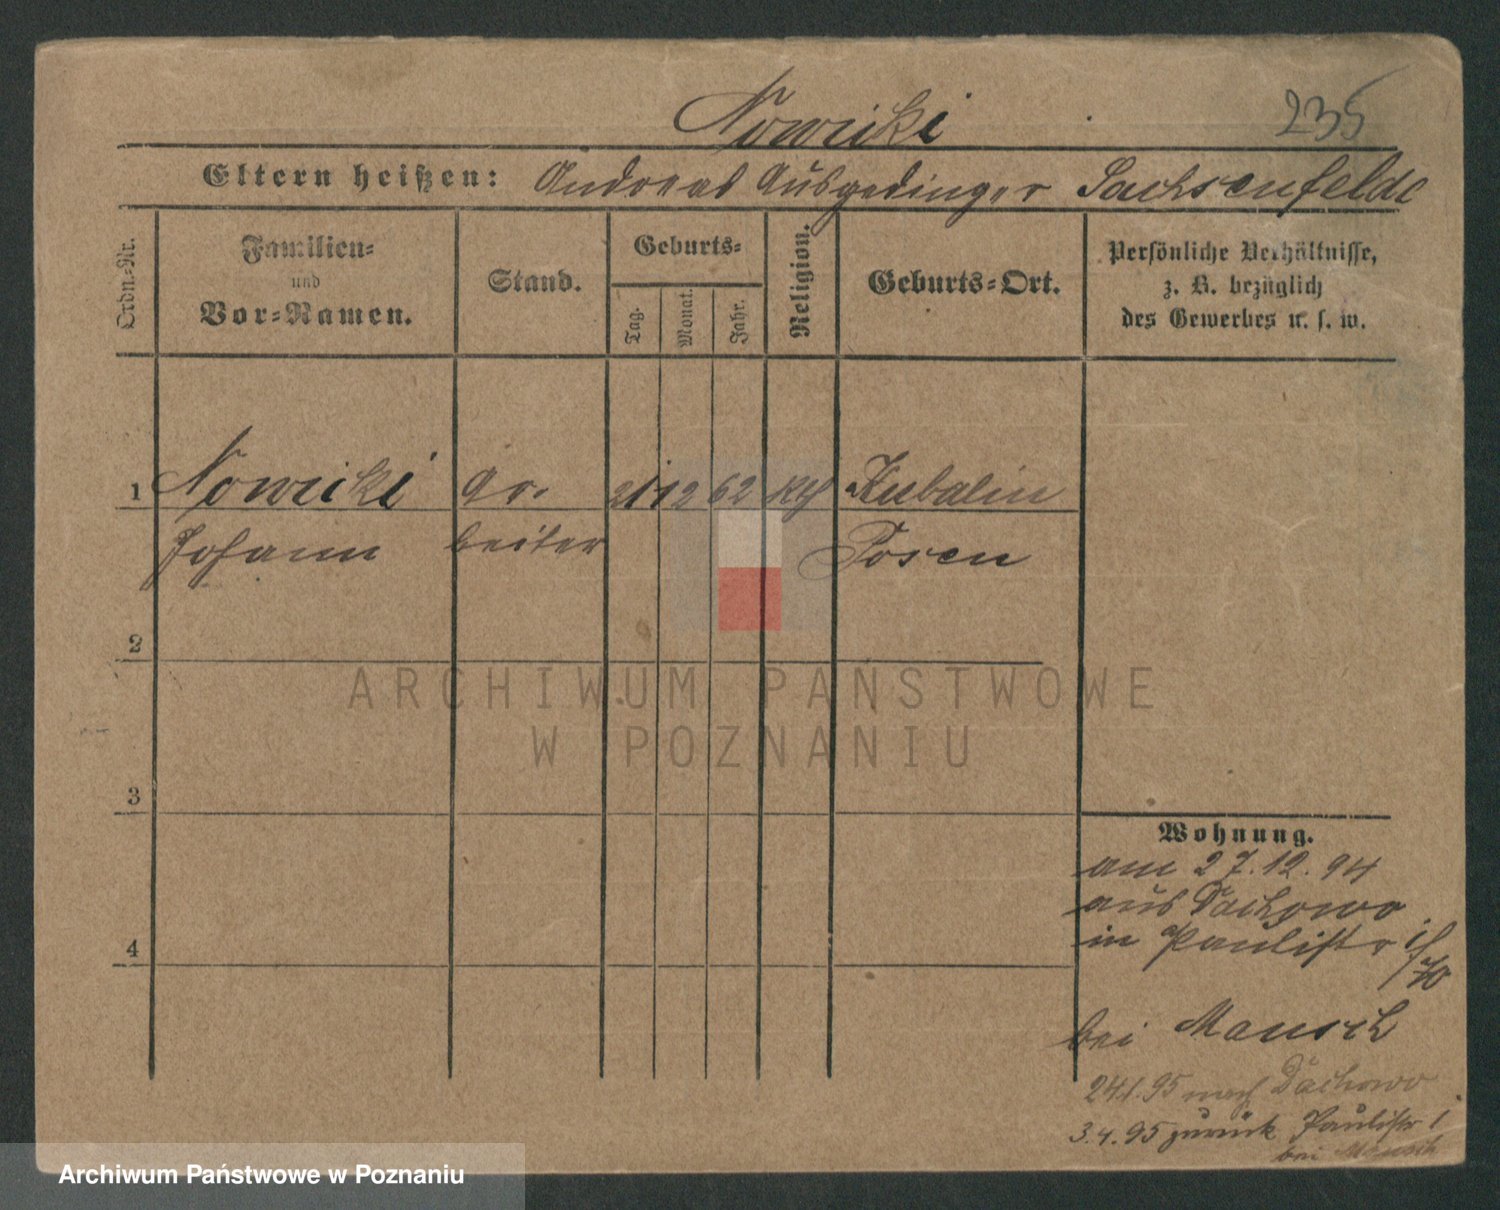 Nowicki
235
Eltern heißen: Andreas Ausgedinger Sachsenfelde
Ordn.-Nr.
Familien-
und
Vor-Namen.
Stand.
Geburts-
Tag.
Monat.
Jahr.
Religion.
Geburts-Ort.
Persönliche Verhältnisse,
z. B. bezüglich
des Gewerbes u. s. w.
1 Nowicki Ar- 21 12 62 kth Kubalin
Johann beiter Posen
2
3
4
Wohnung.
am 27.12.94
aus Dachowo
in Paulistr 1
bei Mausch
24.1.95 nach Dachowo
3.4.95 zurück Paulistr 1
bei Mausch
ARCHIWUM PAŃSTWOWE
W POZNANIU
Archiwum Państwowe w Poznaniu